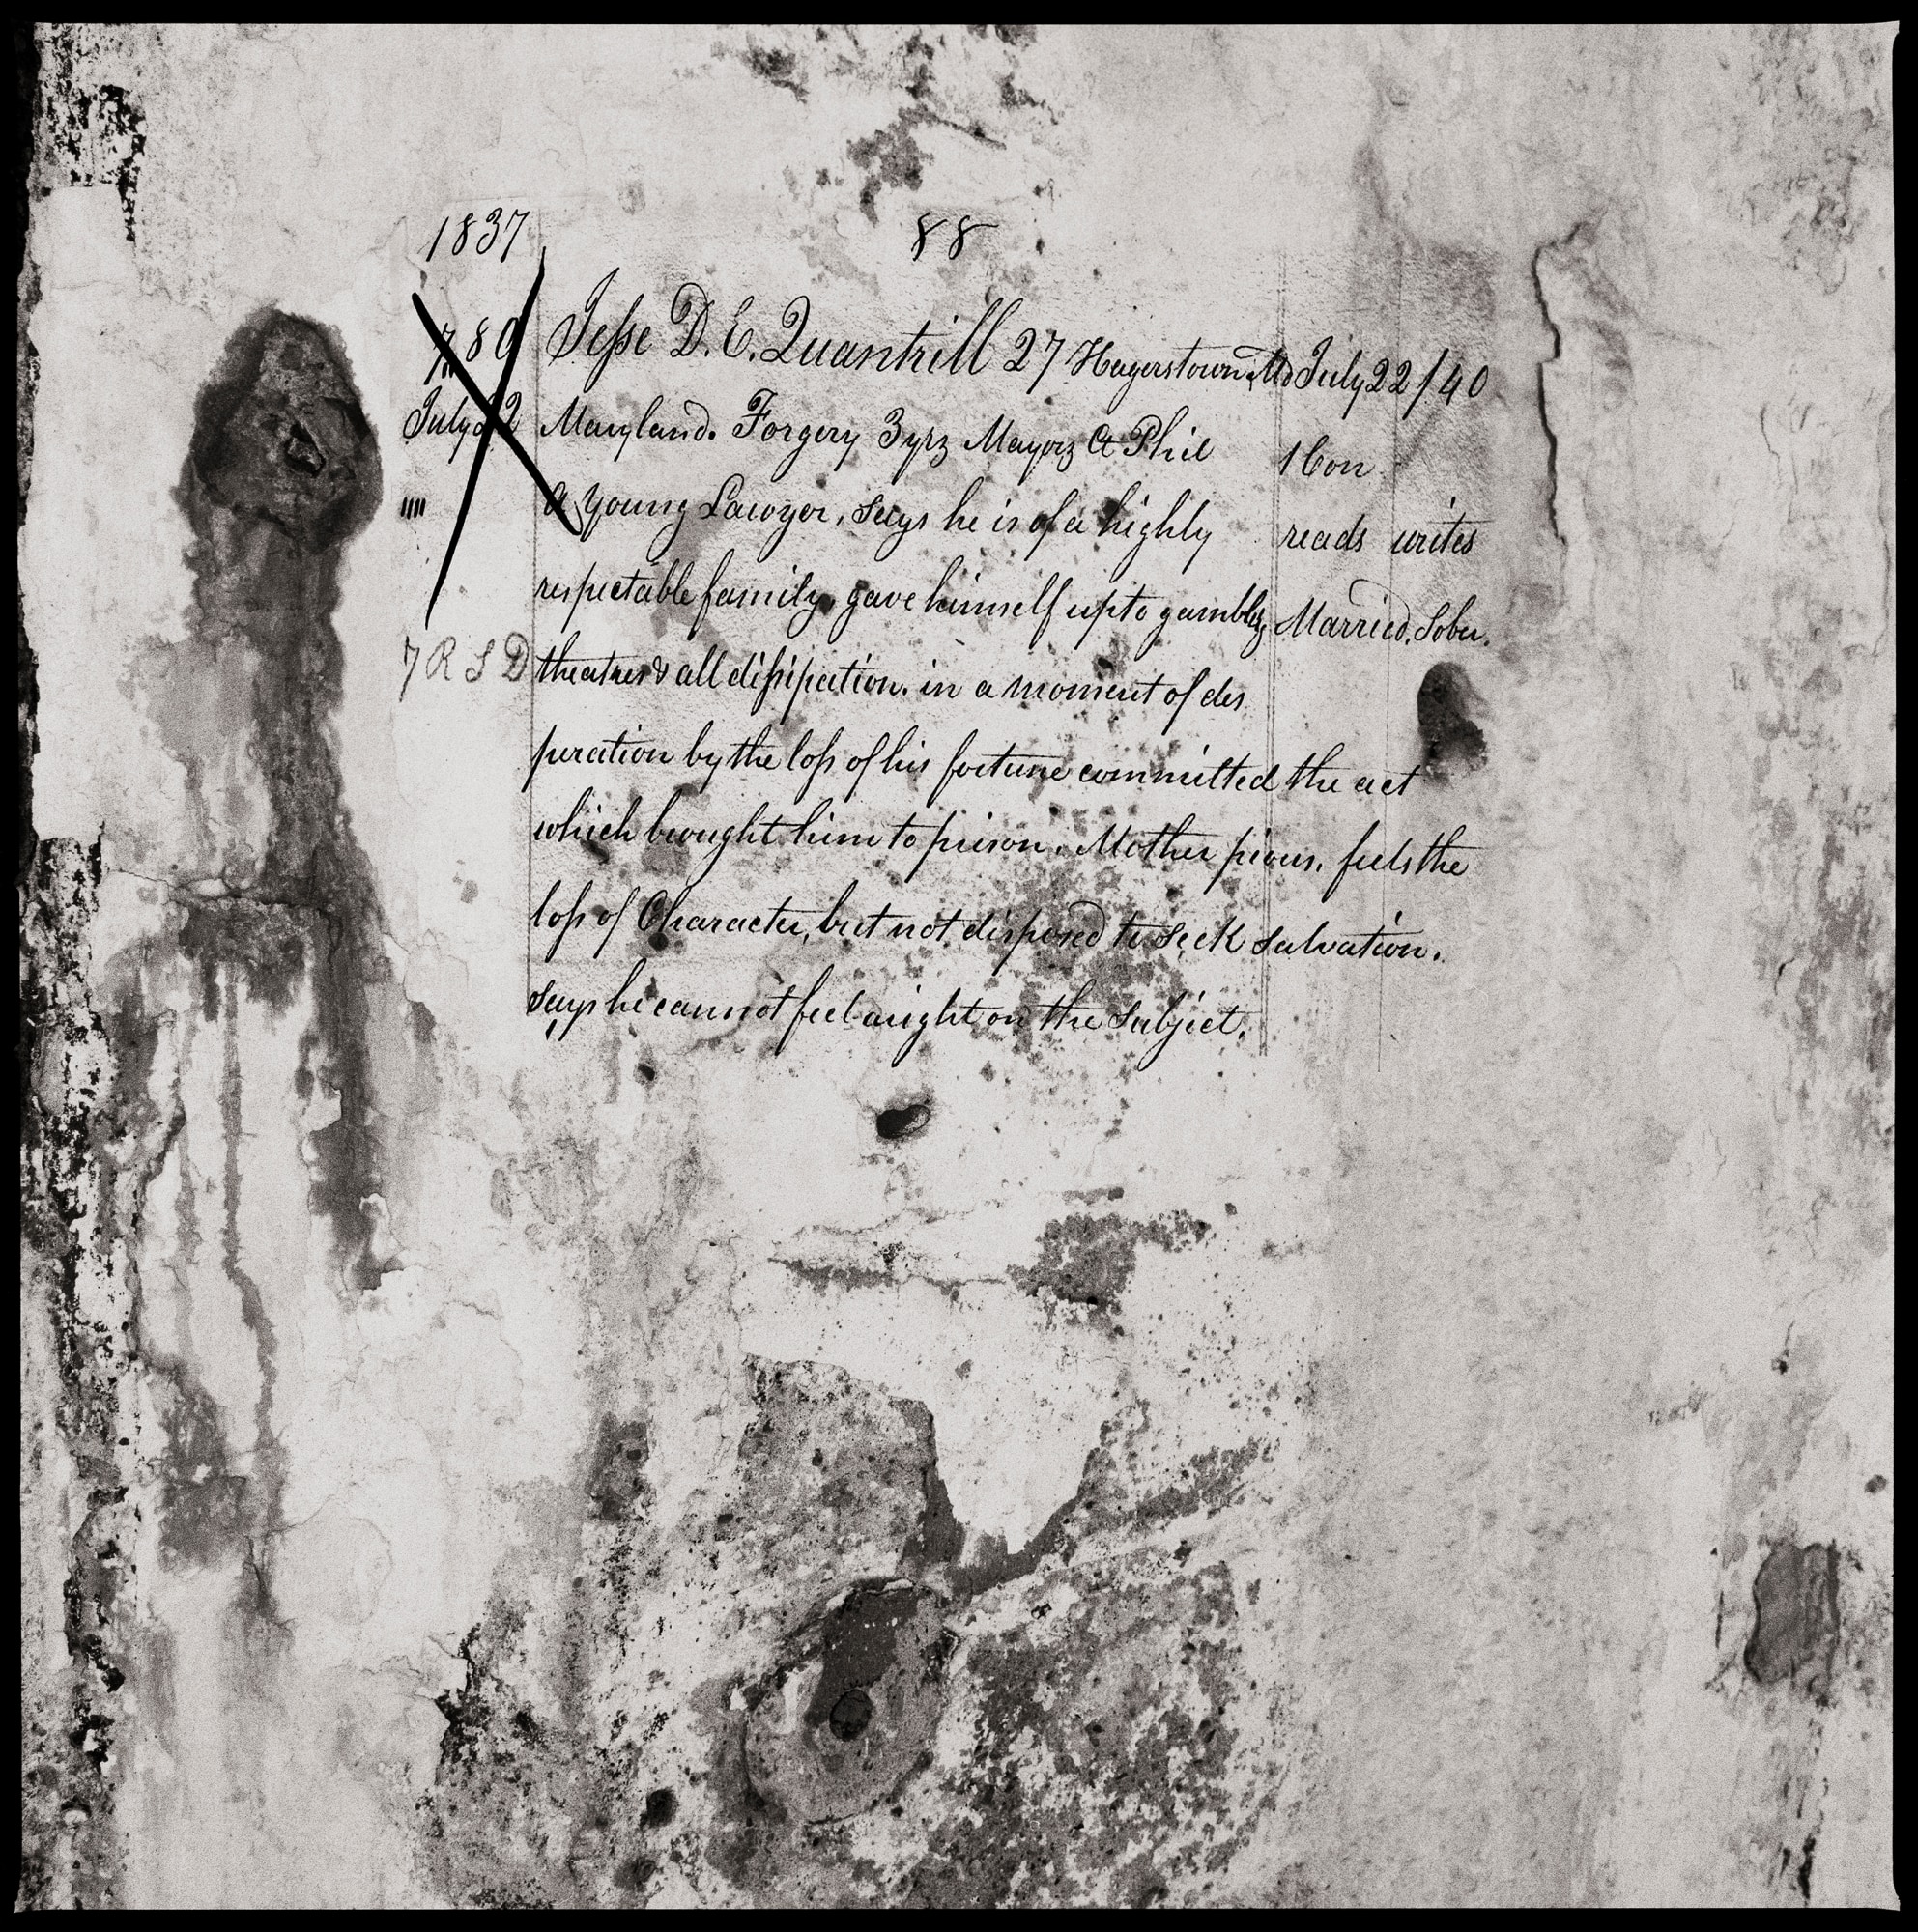 1837 88
780 Jesse D. E. Quantrill 27 Hagerstown Md July 22/40
July 22 Maryland. Forgery 3 yrs Mayors Ct Phil 1 Con
A young Lawyer, says he is of a highly reads writes
respectable family, gave himself up to gambling Married. Sober.
7 R S D theatres & all dissipation. in a moment of des
peration by the loss of his fortune committed the act
which brought him to prison. Mother pious. feels the
loss of Character, but not disposed to seek salvation.
says he cannot feel aright on the subject.